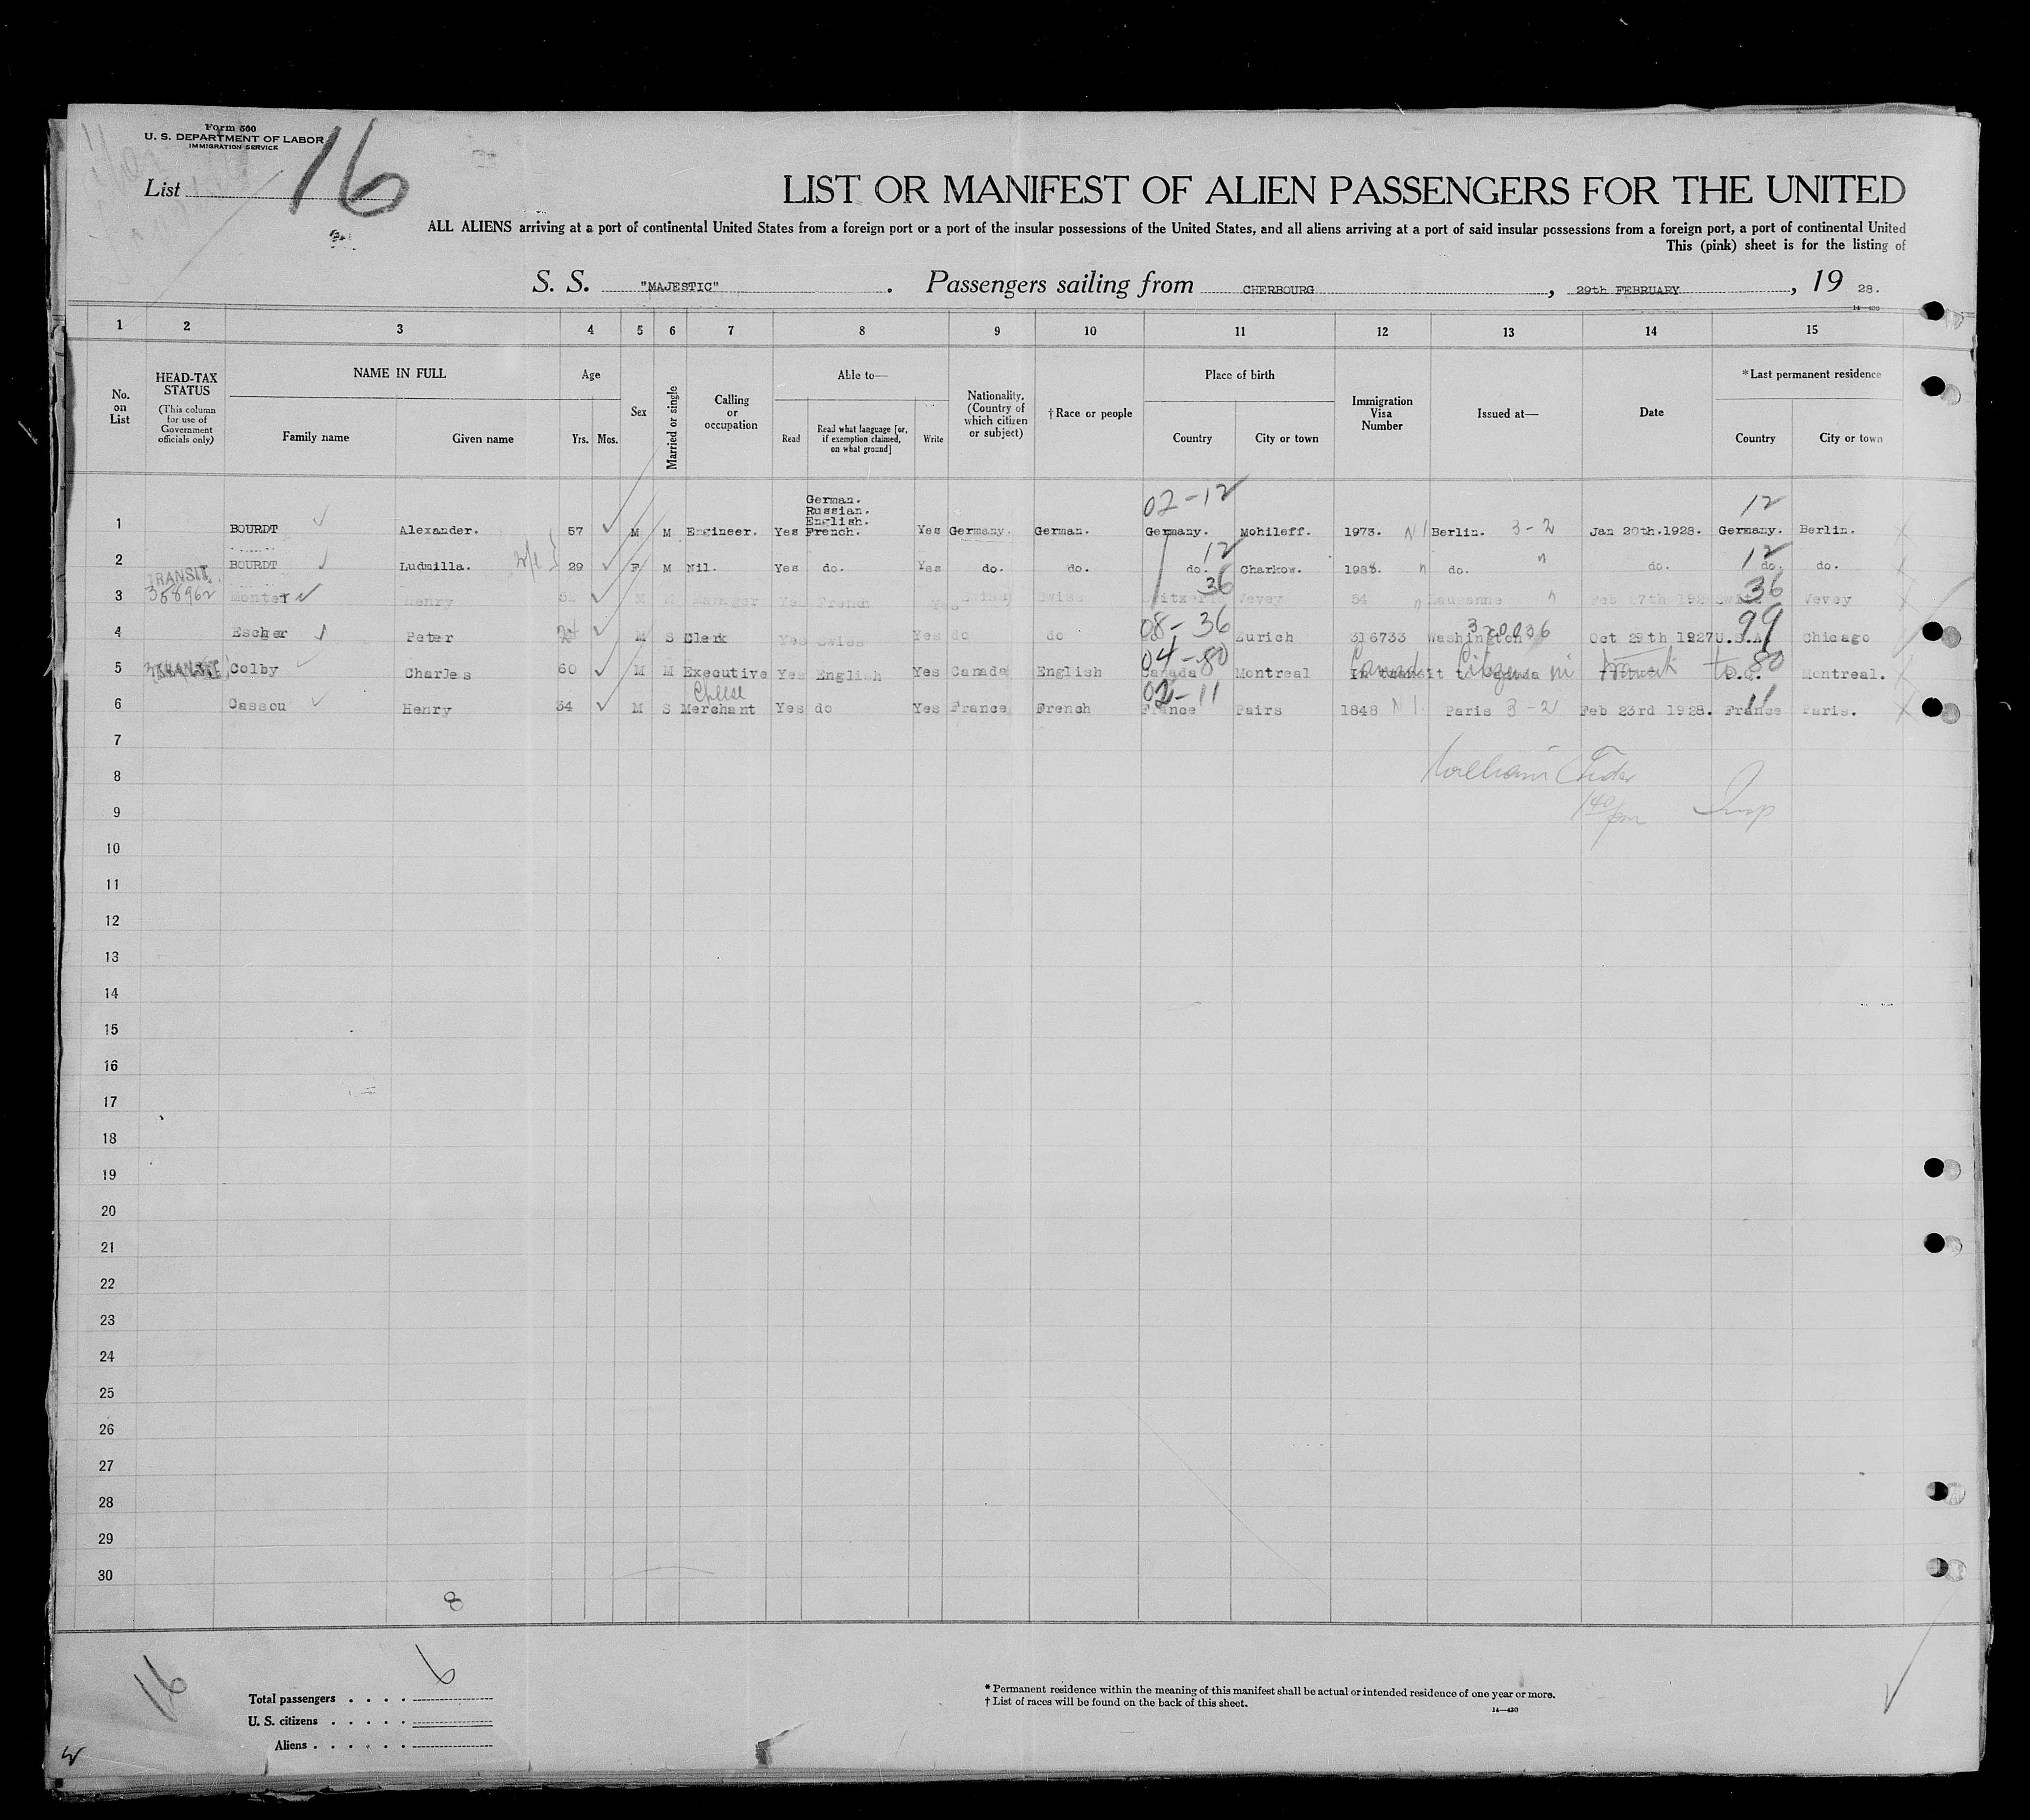 Form 500
U. S. DEPARTMENT OF LABOR
IMMIGRATION SERVICE
List 16
LIST OR MANIFEST OF ALIEN PASSENGERS FOR THE UNITED
ALL ALIENS arriving at a port of continental United States from a foreign port or a port of the insular possessions of the United States, and all aliens arriving at a port of said insular possessions from a foreign port, a port of continental United
This (pink) sheet is for the listing of
S. S. "MAJESTIC" . Passengers sailing from CHERBOURG , 29th FEBRUARY , 19 28.
14—430
1 2 3 4 5 6 7 8 9 10 11 12 13 14 15
No. on List
HEAD-TAX STATUS
(This column for use of Government officials only)
NAME IN FULL
Family name Given name
Age
Yrs. Mos.
Sex
Married or single
Calling or occupation
Able to—
Read
Read what language [or, if exemption claimed, on what ground]
Write
Nationality. (Country of which citizen or subject)
† Race or people
Place of birth
Country City or town
Immigration Visa Number
Issued at—
Date
* Last permanent residence
Country City or town
02-12 12
German.
Russian.
English.
1 BOURDT Alexander. 57 M M Engineer. Yes French. Yes Germany. German. Germany. Mohileff. 1973. Berlin. 3-2 Jan 20th.1928. Germany. Berlin.
12 12
2 BOURDT Ludmilla. 29 F M Nil. Yes do. Yes do. do. do. Charkow. do. do. do. do.
TRANSIT
36 36
3 358962 Henry M M Manager Yes French Yes Swiss Swiss Vevey 54 Lausanne Vevey
08-36 320036 99
4 Escher Peter M S Clerk Yes Swiss Yes do do Zurich 316733 Washington Oct 29th 1927 U.S.A. Chicago
04-80 80
5 TRANSIT Colby Charles 60 M M Executive Yes English Yes Canada English Canada Montreal In transit to Montreal.
Cheese
02-11 11
6 Cassou Henry 34 M S Merchant Yes do Yes France French France Pairs 1848 Paris 3-2 Feb 23rd 1928. France Paris.
7
8 William
9 1 40 pm Insp
10
11
12
13
14
15
16
17
18
19
20
21
22
23
24
25
26
27
28
29
30
8
16
Total passengers . . . . 6
U. S. citizens . . . . .
Aliens . . . . . .
* Permanent residence within the meaning of this manifest shall be actual or intended residence of one year or more.
† List of races will be found on the back of this sheet.
14—430